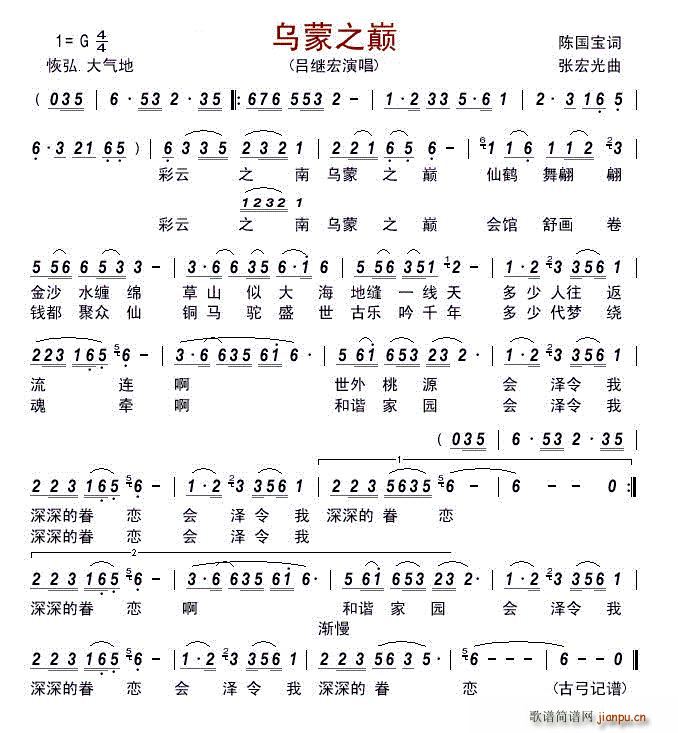 乌蒙之巅
1= G 4/4
陈国宝词
恢弘.大气地
(吕继宏演唱)
张宏光曲
( 035 | 6·53 2·35 |: 676 553 2 - | 1·2 33 5·6 1 | 2·3 1 6 5 |
6·3 21 65 ) | 6 3 3 5 2 3 2 1 | 2 2 1 6 5 6 - | 6 1 1 6 1 1 2 2 3 |
彩云 之 南 乌蒙 之 巅 仙鹤 舞翩 翩
1232 1
彩云 之 南 乌蒙 之 巅 会馆 舒画 卷
5 56 6 5 3 3 - | 3·6 6 3 5 6·1 | 5 56 351 1 2 - | 1·2 2 3 356 1 |
金沙 水缠 绵 草 山 似 大 海 地缝 一 线 天 多 少 人往 返
钱都 聚众 仙 铜 马 驼 盛 世 古乐 吟 千 年 多 少 代梦 绕
2 2 3 1 6 5 5 6 - | 3·6 635 61 6· | 5 61 653 23 2· | 1·2 2 3 356 1 |
流 连 啊 世外 桃 源 会 泽令 我
魂 牵 啊 和谐 家 园 会 泽令 我
( 035 | 6·53 2·35 |
1
2 2 3 165 5 6 - | 1·2 2 3 2 3 2 1 | 2 2 3 5635 5 6 - | 6 - - 0 :|
深深的眷 恋 会 泽 令 我 深深的 眷 恋
深深的眷 恋 会 泽 令 我
2
2 2 3 165 5 6 - | 3·6 635 61 6· | 5 61 653 23 2· | 1·2 2 3 356 1 |
深深的眷 恋 啊 和谐 家 园 会 泽令 我
渐慢
2 2 3 165 5 6 - | 1·2 2 3 2 3 2 1 | 2 2 3 56 3 5· | 5 6 - - - | 6 - - - ‖
深深的眷 恋 会 泽 令 我 深深的 眷 恋 (古弓记谱)
歌谱简谱网
jianpu.cn